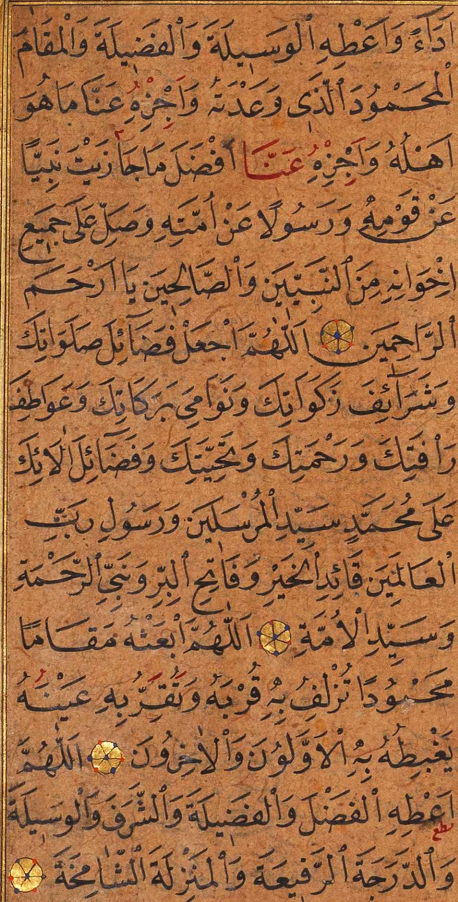 اَدَآءً وَاَعْطِهِ الْوَسِيلَةَ وَالْفَضِيلَةَ وَالْمَقَامَ
الْمَحْمُودَ الَّذِى وَعَدْتَهُ وَاجْزِهِ عَنَّا مَا هُوَ
اَهْلُهُ وَاجْزِهِ عَنَّا اَفْضَلَ مَا جَازَيْتَ نَبِيًّا
عَنْ قَوْمِهِ وَرَسُولًا عَنْ اُمَّتِهِ وَصَلِّ عَلَى جَمِيعِ
اِخْوَانِهِ مِنَ النَّبِيِّينَ وَالصَّالِحِينَ يَا اَرْحَمَ
الرَّاحِمِينَ اَللّٰهُمَّ اجْعَلْ فَضَآئِلَ صَلَوَاتِكَ
وَشَرَآئِفَ زَكَوَاتِكَ وَنَوَامِىَ بَرَكَاتِكَ وَعَوَاطِفَ
رَأْفَتِكَ وَرَحْمَتِكَ وَتَحِيَّتِكَ وَفَضَآئِلَ اٰلَائِكَ
عَلَى مُحَمَّدٍ سَيِّدِ الْمُرْسَلِينَ وَرَسُولِ رَبِّ
الْعَالَمِينَ قَائِدِ الْخَيْرِ وَفَاتِحِ الْبِرِّ وَنَبِىِّ الرَّحْمَةِ
وَسَيِّدِ الْاُمَّةِ اَللّٰهُمَّ ابْعَثْهُ مَقَامًا
مَحْمُودًا تُزْلِفُ بِهِ قُرْبَهُ وَتُقِرُّ بِهِ عَيْنَهُ
يَغْبِطُهُ بِهِ الْاَوَّلُونَ وَالْاٰخِرُونَ اَللّٰهُمَّ
اَعْطِهِ الْفَضْلَ وَالْفَضِيلَةَ وَالشَّرَفَ وَالْوَسِيلَةَ
وَالدَّرَجَةَ الرَّفِيعَةَ وَالْمَنْزِلَةَ الشَّامِخَةَ